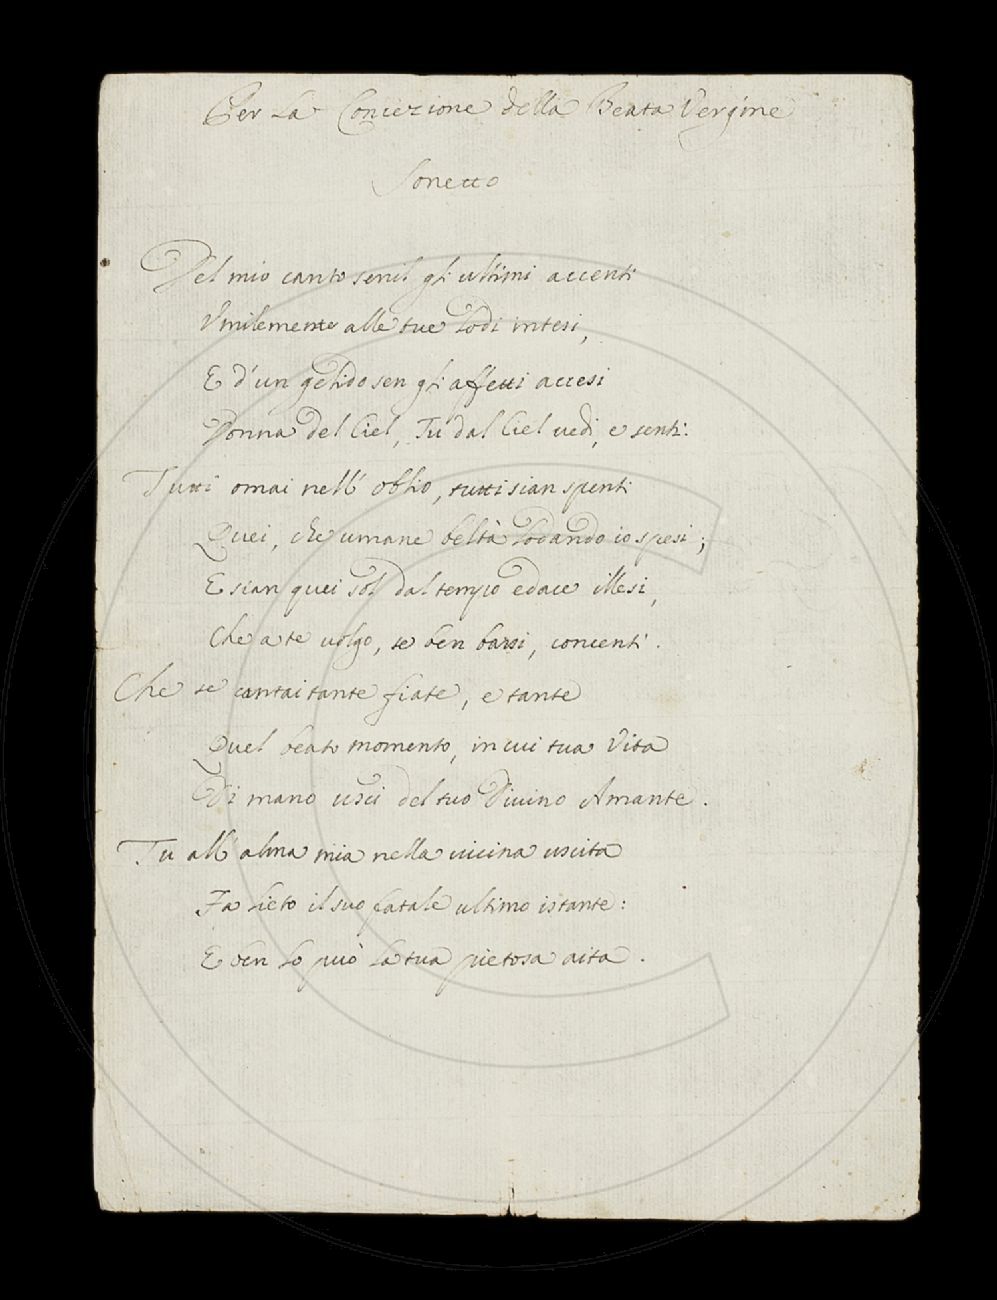 Per La Concezione della Beata Vergine
Sonetto
Del mio canto senil gli ultimi accenti
Umilemente alle tue Lodi intesi,
E d'un gelido sen gli affetti accesi
Donna del Ciel, Tu dal Ciel vedi, e senti.
Tutti omai nell' oblio, tutti sian spenti
Quei, che umane beltà Lodando io spesi;
E sian quei sol dal tempo edace illesi,
Che a te volgo, se ben bassi, concenti.
Che se cantai tante fiate, e tante
Quel beato momento, in cui tua Vita
Di mano uscì del tuo Divino Amante.
Tu all' alma mia nella vicina uscita
Fa lieto il suo fatale ultimo istante:
E ben Lo può La tua pietosa aita.